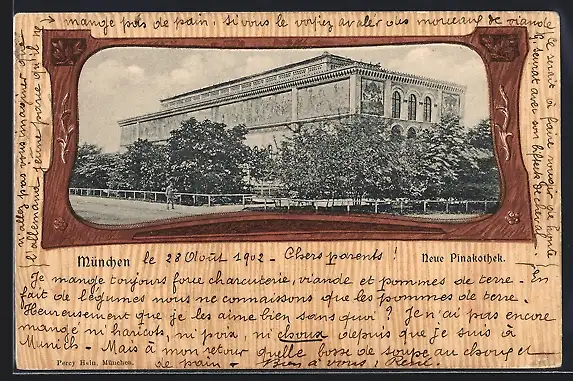 mange pas de pain, si vous le voyiez avaler des morceaux de viande
München le 28 Août 1902 - Chers parents ! Neue Pinakothek.
Je mange toujours force charcuterie, viande et pommes de terre - En
fait de légumes nous ne connaissons que les pommes de terre.
Heureusement que je les aime bien sans quoi ? Je n'ai pas encore
mangé ni haricots, ni pois, ni choux depuis que je suis à
Munich - Mais à mon retour quelle bosse de soupe au choux et
de pain - Bien à vous, René.
Percy Hein, München.
n'allez pas vous imaginer que
l'allemand jeune parce qu'il ne
le serait à faire rougir de honte
Seurat avec son bifteck de cheval.